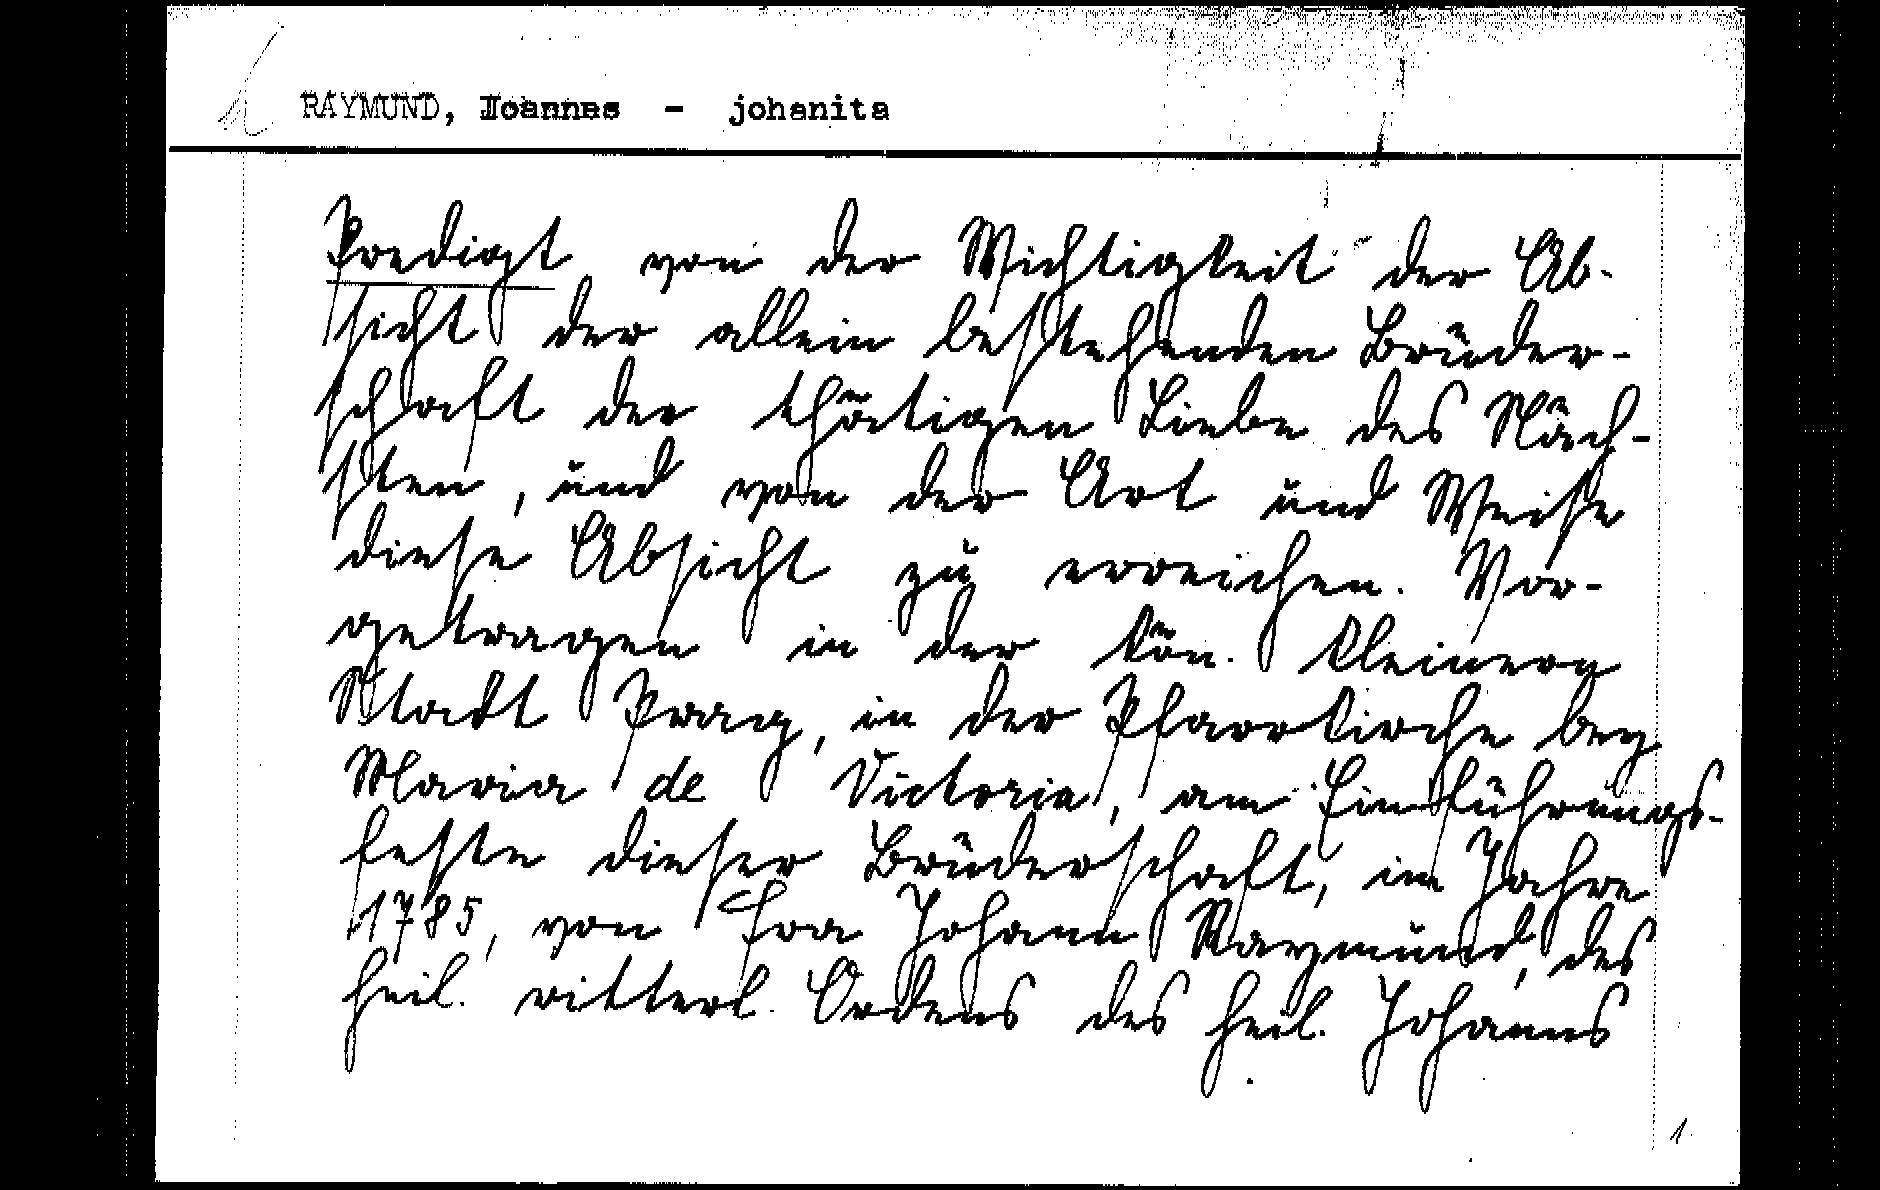 RAYMUND, Joannes - johanita
Predigt von der Wichtigkeit der Ab-
sicht der allein bestehenden Brüder-
schaft der thätigen Liebe des Näch-
sten, und von der Art und Weise
diese Absicht zu erreichen. Vor-
getragen in der kön. kleinern
Stadt Prag, in der Pfarrkirche bey
Maria de Victoria, am Einführungs-
feste dieser Brüderschaft, im Jahre
1785, von Fra Johann Raymund, des
heil. ritterl. Ordens des heil. Johanns
1